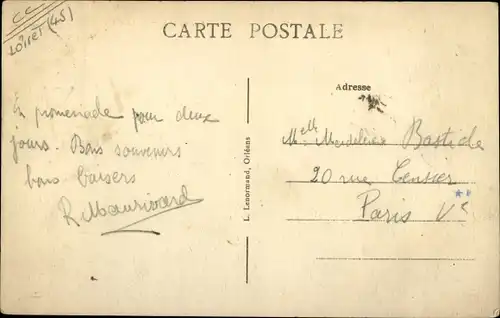 CC
Loiret (45)
CARTE POSTALE
Adresse
En promenade pour deux
jours. Bons souvenirs
bons baisers
L. Lenormand, Orléans
Melle Bastide
20 rue Censier
Paris Ve